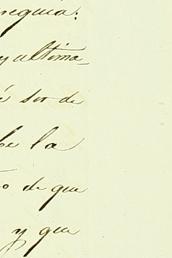 requia:
y ultima_
é ser de
be la
o de que
y que